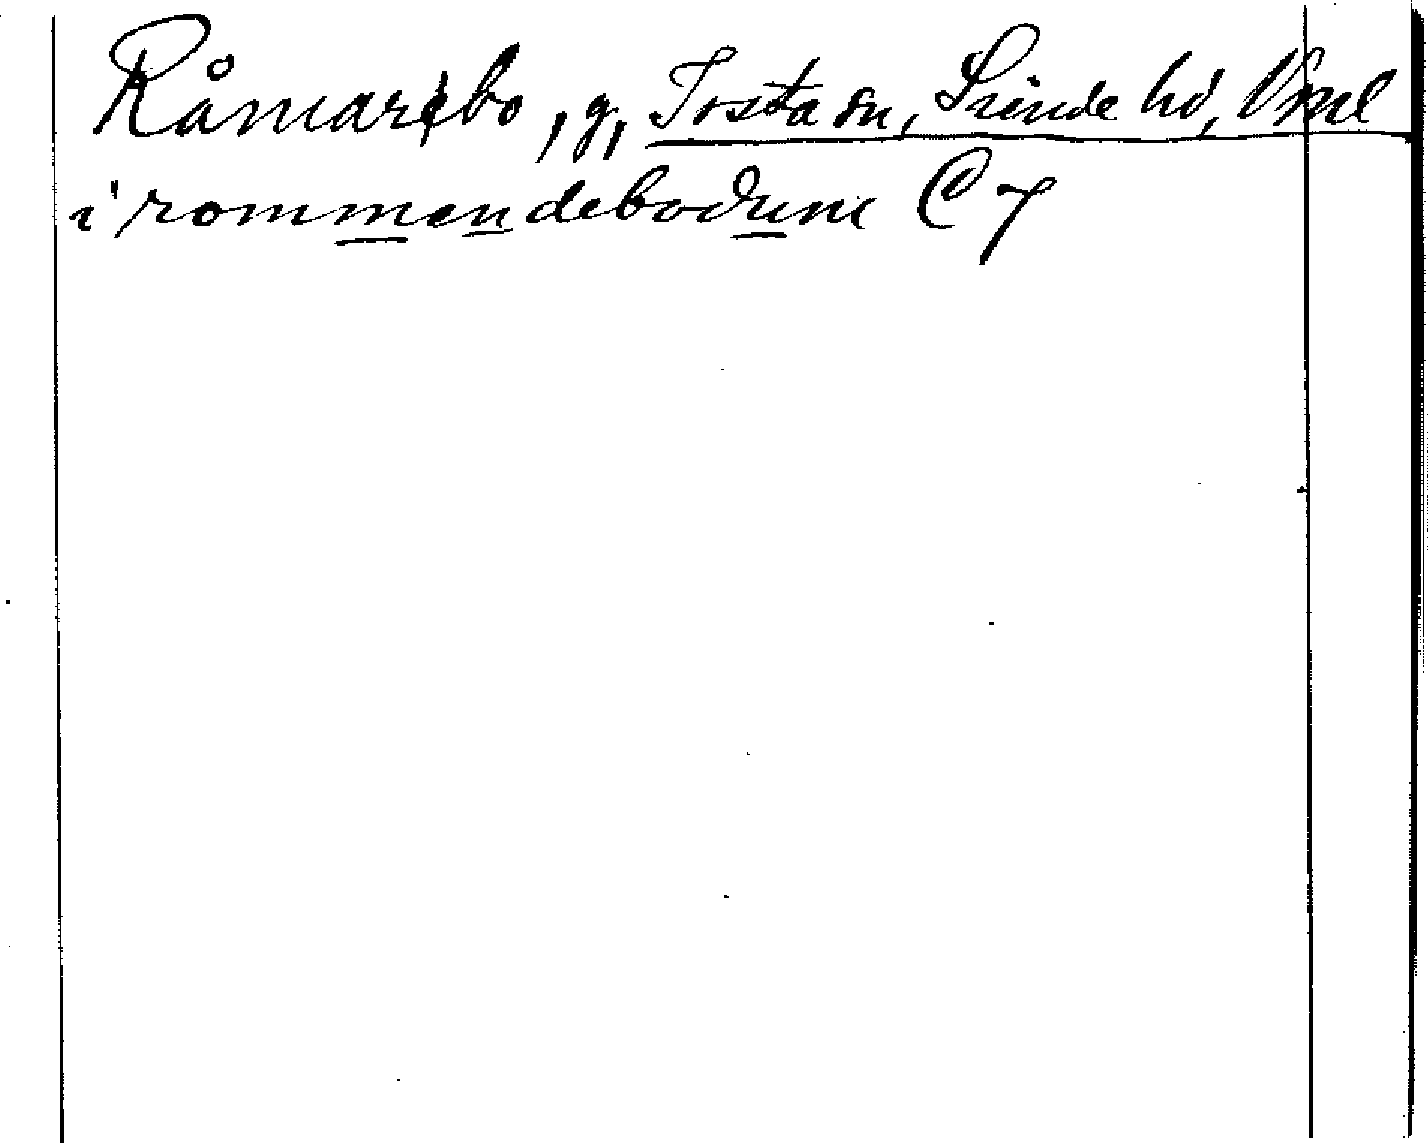 Råmarebo, g, Tosta sn, Simde hd, Vml
i rommendebodume C 7